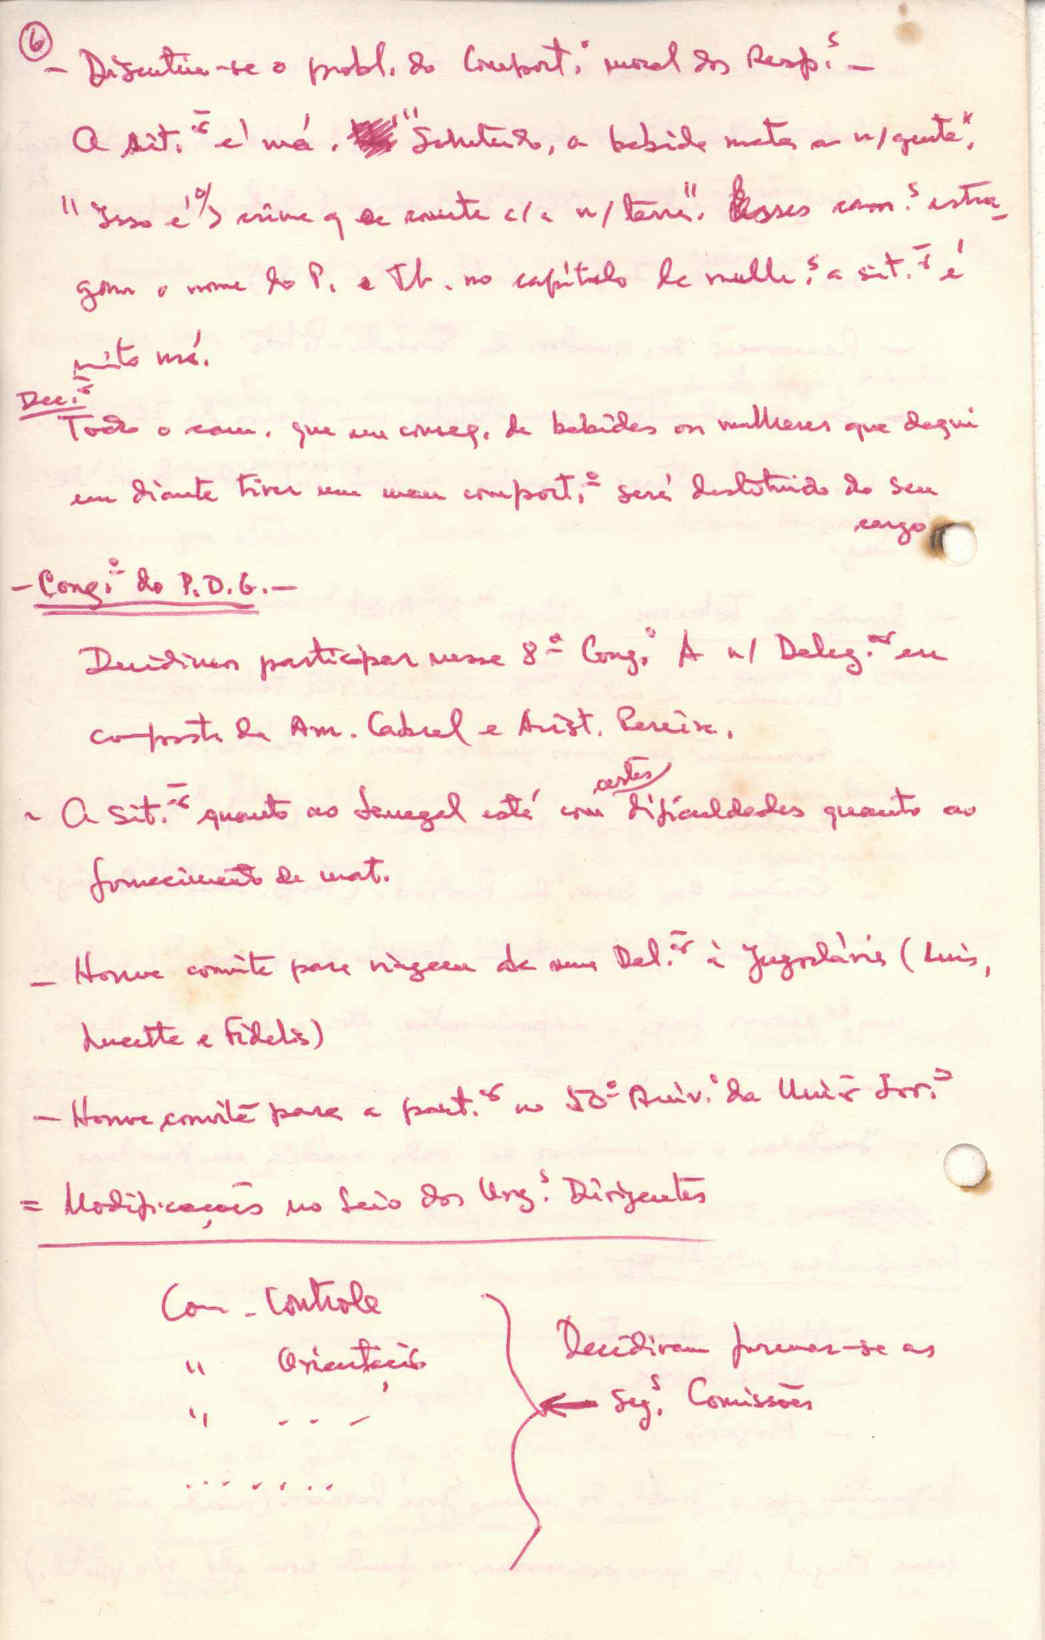 6
- Discutiu-se o probl. do Comport.º moral dos Resp.s -
A sit.ão é má. "Sobretudo, a bebida mata a n/gente".
"Isso é o/ crime q se comete c/ a n/terra". Esses cam.s estra-
gam o nome do P. e Tb. no capítulo de mulh.s a sit.ão é
muito má.
Dec.ão
Todo o cam. que em conseq. de bebidas ou mulheres que daqui
em diante tiver um mau comport.º será destituido do seu
cargo
- Cong.º do P.D.G. -
Decidimos participar nesse 8º Cong.º A n/ Deleg.ão em
composta de Am. Cabral e Arist. Pereira.
- A sit.ão quanto ao Senegal está com certas dificuldades quanto ao
fornecimento de mat.
- Houve convite para viagem de uma Del.ão à Jugoslávia (Luís,
Lucette e Fidelis)
- Houve convite para a part.ão no 50º Aniv.º da União Sov.ª
= Modificações no Seio dos Org.s Dirigentes
Com. Controle
" Orientação
" - - -
. . . . . . . .
Decidiram formar-se as
Seg.s Comissões